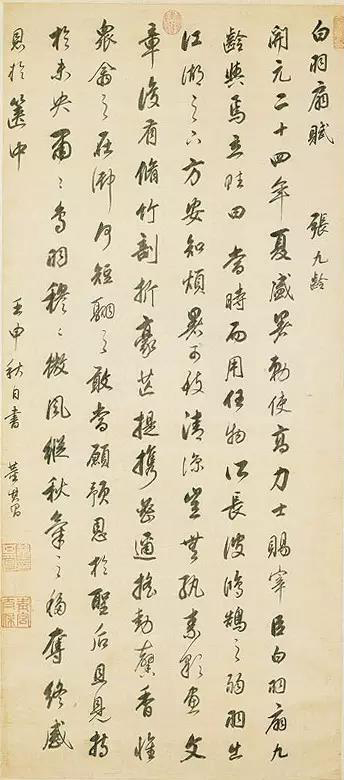 白羽扇賦 張九齡
開元二十四年夏盛暑勅使高力士賜宰臣白羽扇九
齡與焉立賦曰當時而用任物所長彼鴻鵠之弱羽出
江湖之下方安知煩暑可致清涼豈無紈素彩畫文
章復有脩竹剖析豪芒提攜密邇搖動馨香惟
衆禽之在御何短翮之敢當顧預恩於聖后且見持
於未央肅〻鳥羽穆〻微風縱秋氣之移奪終感
恩於篋中
壬申秋日書 董其昌